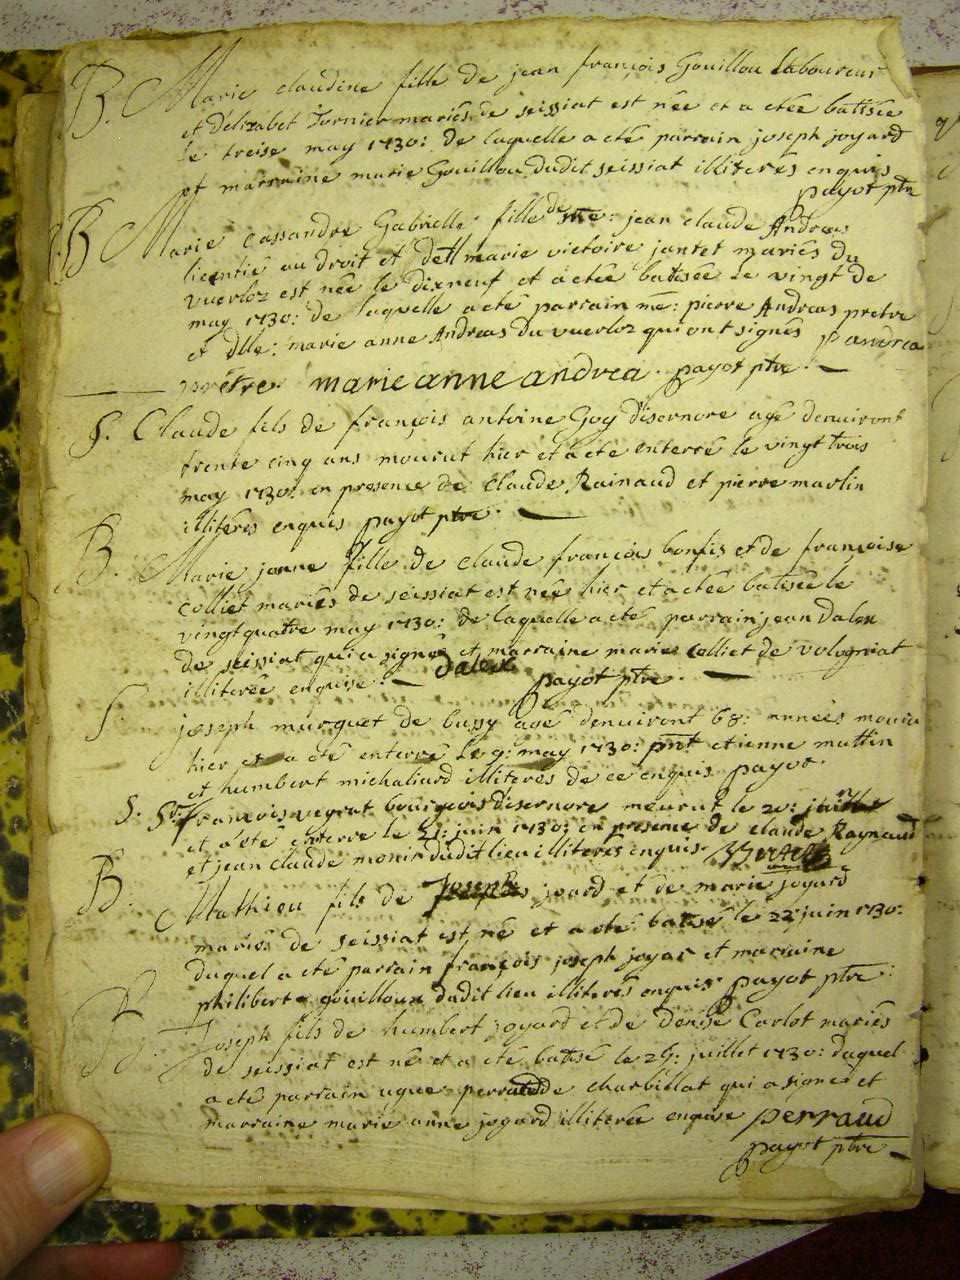 B. Marie claudine fille de jean françois Gouillou Laboureur
et d'elizabet Tornier mariés de seissiat est née et a etée batisée
le treise may 1730: de laquelle a eté parrain joseph joyard
et marraine marie Gouillou dudit seissiat illiterés enquis
payot ptre
B Marie cassandre Gabrielle fille de me: jean claude Andreas
licentié au droit et de dell marie victoire jantet mariés du
vuerloz est née le dixneuf et a etée batisée le vingt de
may 1730: de laquelle a eté parrain me: pierre Andreas pretre
et dlle: marie anne Andreas du vuerloz qui ont signés P andrea
prêtre marie anne andrea. payot ptre.
S. Claude fils de françois antoine Goy d'isernore agé denuiront
trente cinq ans mourut hier et a eté enterré le vingt trois
may 1730: en presence de Claude Rainaud et pierre marlin
illiterés enquis payot ptre.
B. Marie jeanne fille de claude françois bonfis et de françoise
colliet mariés de seissiat est née hier et a etée batisée le
vingt quatre may 1730: de laquelle a eté parrain jean dalex
de seissiat qui a signé et marraine marie Colliet de vologniat
illiterée enquise. dalex payot ptre.
S. joseph murguet de bussy agé denuiront 68: années mouru
hier et a eté enterré le 9: may 1730: pnt etienne muttin
et humbert michaliard illiterés de ce enquis payot.
S. Sr. francois vegrat bourgeois disernore mourut le 20: juillet
et a eté enterré le 21: juin 1730: en presence de claude Raynaud
et jean claude monir dudit lieu illiterés enquis.
B. Mathieu fils de Joseph joard et de marie joyard
mariés de seissiat est né et a eté batisé le 22 juin 1730:
duquel a eté parrain françois joseph joyar et marraine
philiberte gouilloux dudit lieu illiterés enquis payot ptre:
B. Joseph fils de humbert joyard et de denise Carlot mariés
de seissiat est né et a eté batisé le 29: juillet 1730: duquel
a eté parrain ugue perraud de charbillat qui a signé et
marraine marie anne joyard illiterée enquise perraud
payot ptre